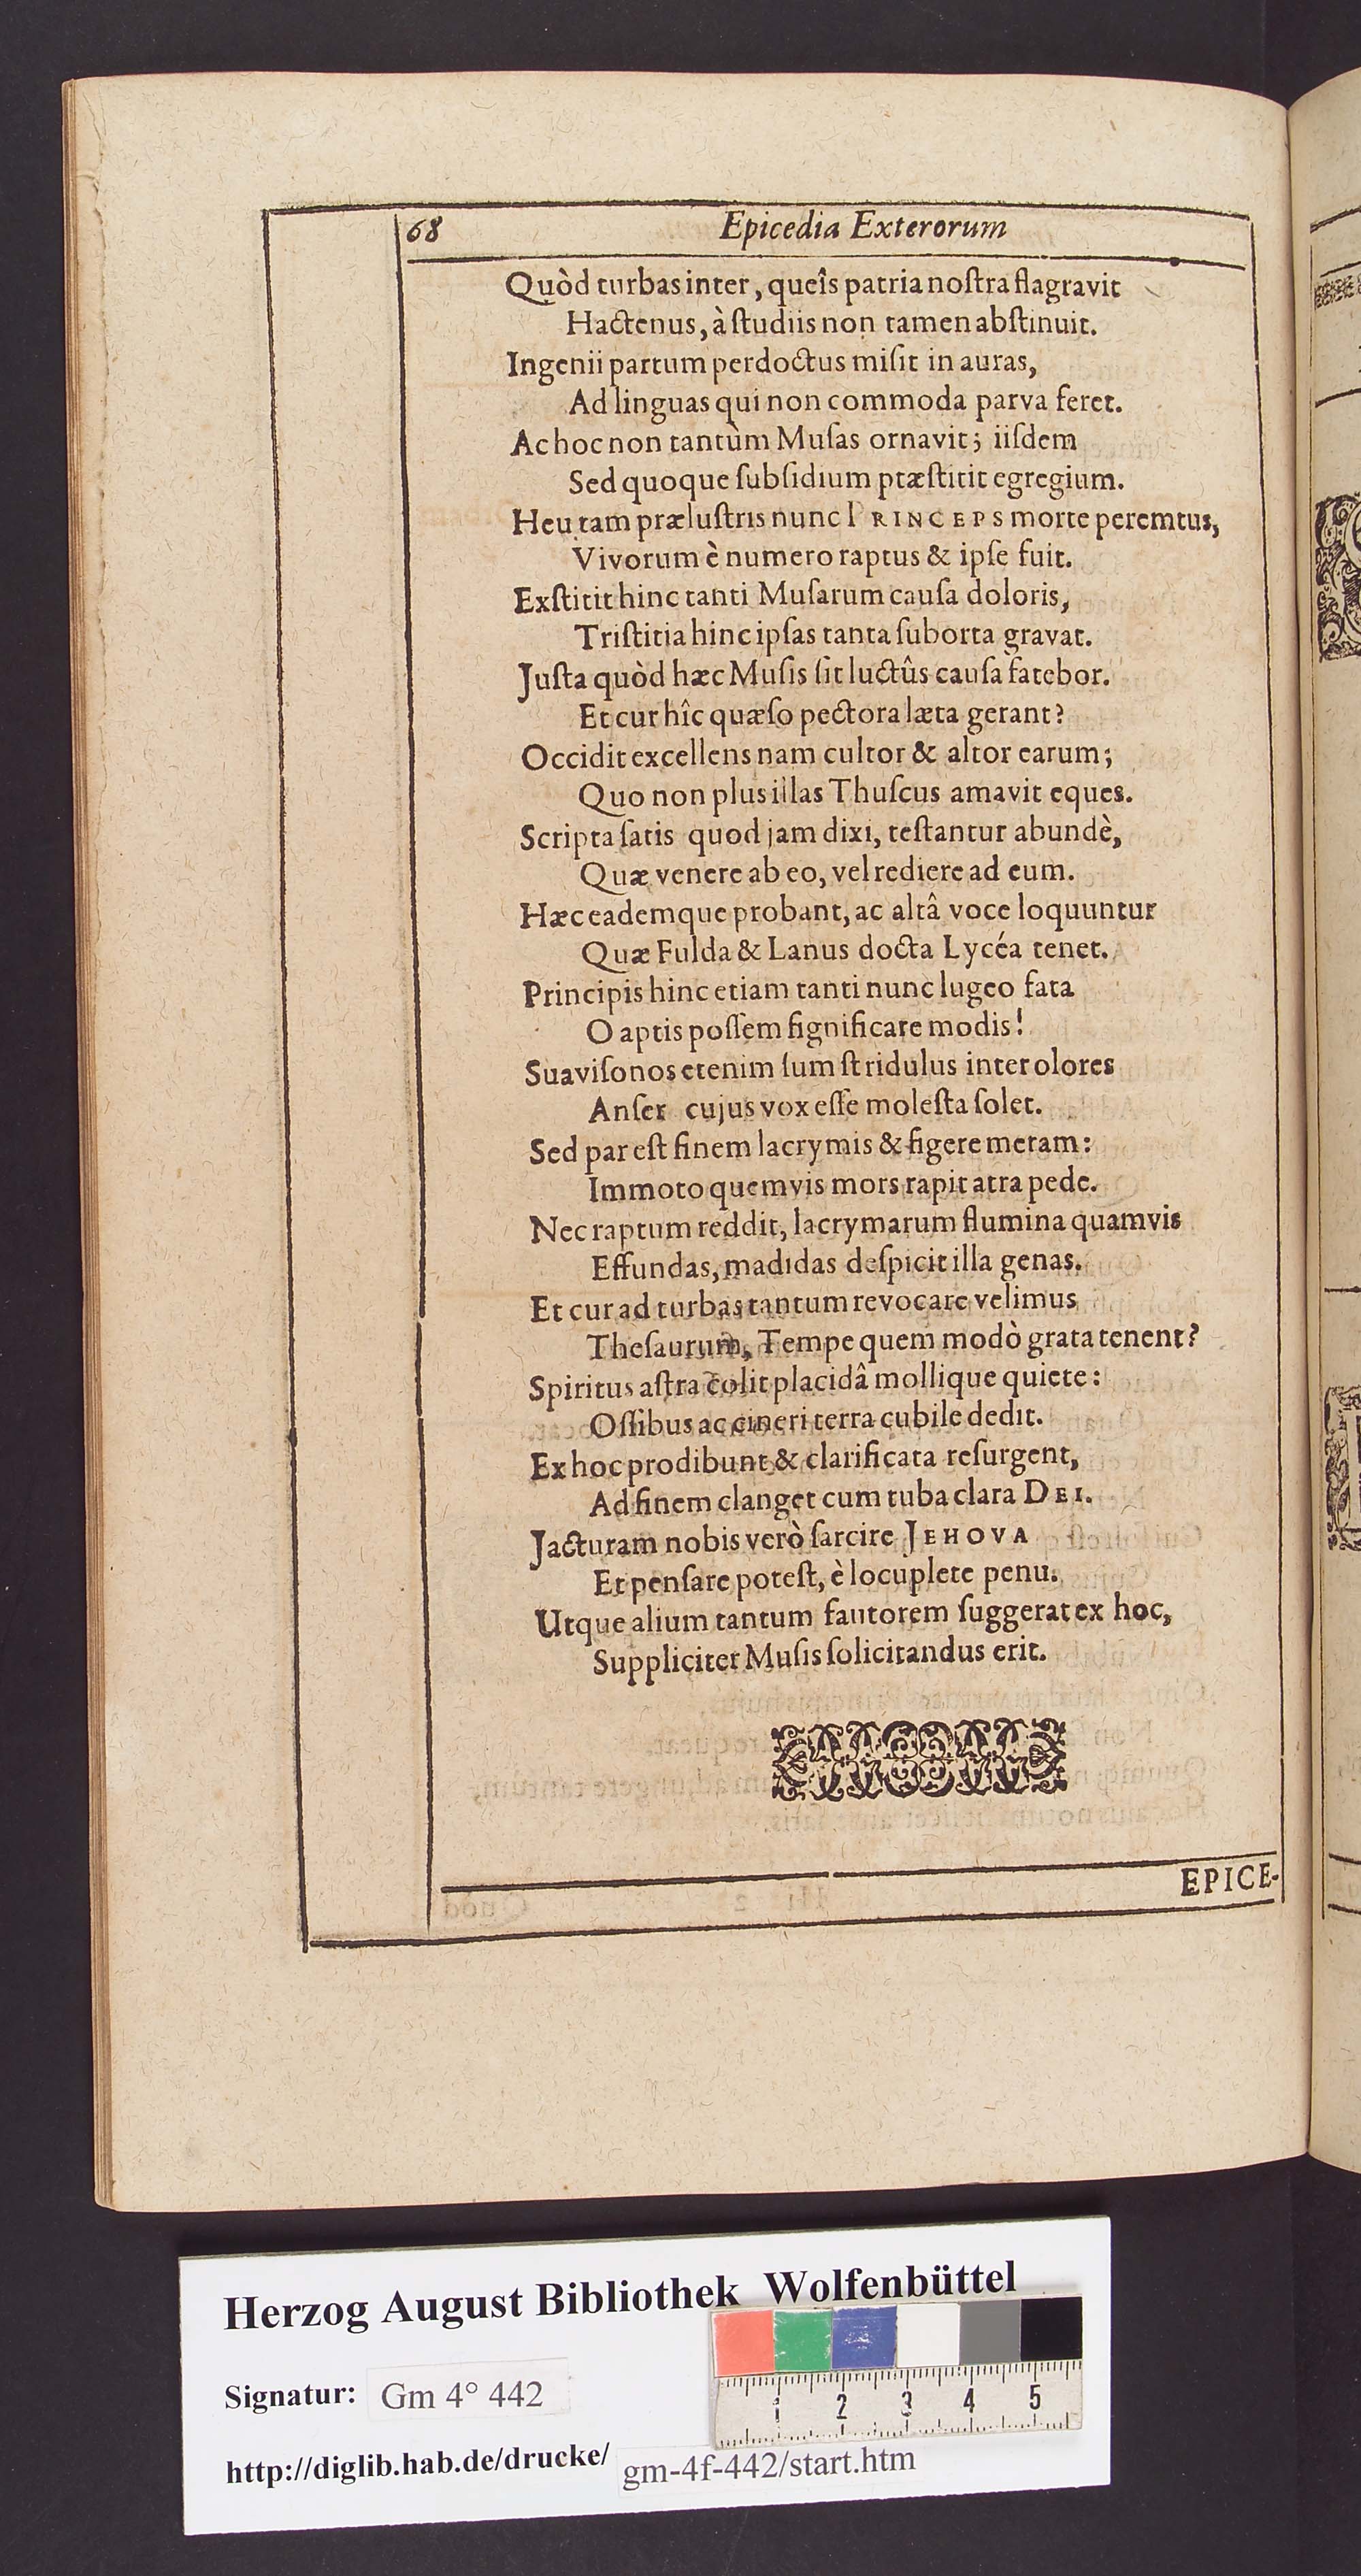 68 Epicedia Exterorum
Quòd turbas inter, queîs patria noſtra flagravit
Hactenus, à ſtudiis non tamen abſtinuit.
Ingenii partum perdoctus miſit in auras,
Ad linguas qui non commoda parva feret.
Ac hoc non tantùm Muſas ornavit; iiſdem
Sed quoque ſubſidium ptæſtitit egregium.
Heu tam præluſtris nunc PRINCEPS morte peremtus,
Vivorum è numero raptus & ipſe fuit.
Exſtitit hinc tanti Muſarum cauſa doloris,
Triſtitia hinc ipſas tanta ſuborta gravat.
Juſta quòd hæc Muſis ſit luctûs cauſa fatebor.
Et cur hîc quæſo pectora læta gerant?
Occidit excellens nam cultor & altor earum;
Quo non plus illas Thuſcus amavit eques.
Scripta ſatis quod jam dixi, teſtantur abundè,
Quæ venere ab eo, vel rediere ad eum.
Hæc eademque probant, ac altâ voce loquuntur
Quæ Fulda & Lanus docta Lycéa tenet.
Principis hinc etiam tanti nunc lugeo fata
O aptis poſſem ſignificare modis!
Suaviſonos etenim ſum ſtridulus inter olores
Anſer cujus vox eſſe moleſta ſolet.
Sed par eſt finem lacrymis & figere metam:
Immoto quemvis mors rapit atra pede.
Nec raptum reddit, lacrymarum flumina quamvis
Effundas, madidas deſpicit illa genas.
Et cur ad turbas tantum revocare velimus
Theſaurum, Tempe quem modò grata tenent?
Spiritus aſtra colit placidâ mollique quiete:
Oſſibus ac cineri terra cubile dedit.
Ex hoc prodibunt & clarificata reſurgent,
Ad finem clanget cum tuba clara DEI.
Jacturam nobis verò ſarcire JEHOVA
Et penſare poteſt, è locuplete penu.
Utque alium tantum fautorem ſuggerat ex hoc,
Suppliciter Muſis ſolicitandus erit.
EPICE-
Herzog August Bibliothek Wolfenbüttel
Signatur: Gm 4° 442
1 2 3 4 5
http://diglib.hab.de/drucke/ gm-4f-442/start.htm